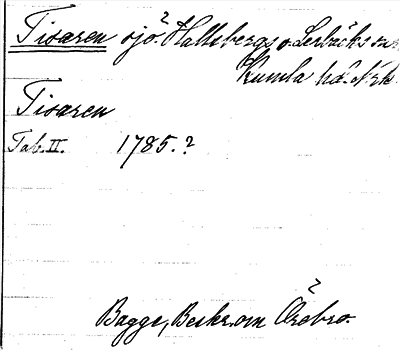 Tisaren sjö. Hallsbergs o. Lerbäcks sn
Kumla hd. Nrk.
Tisaren
Tab. II. 1785.?
Bagge, Beskr. om Örebro.